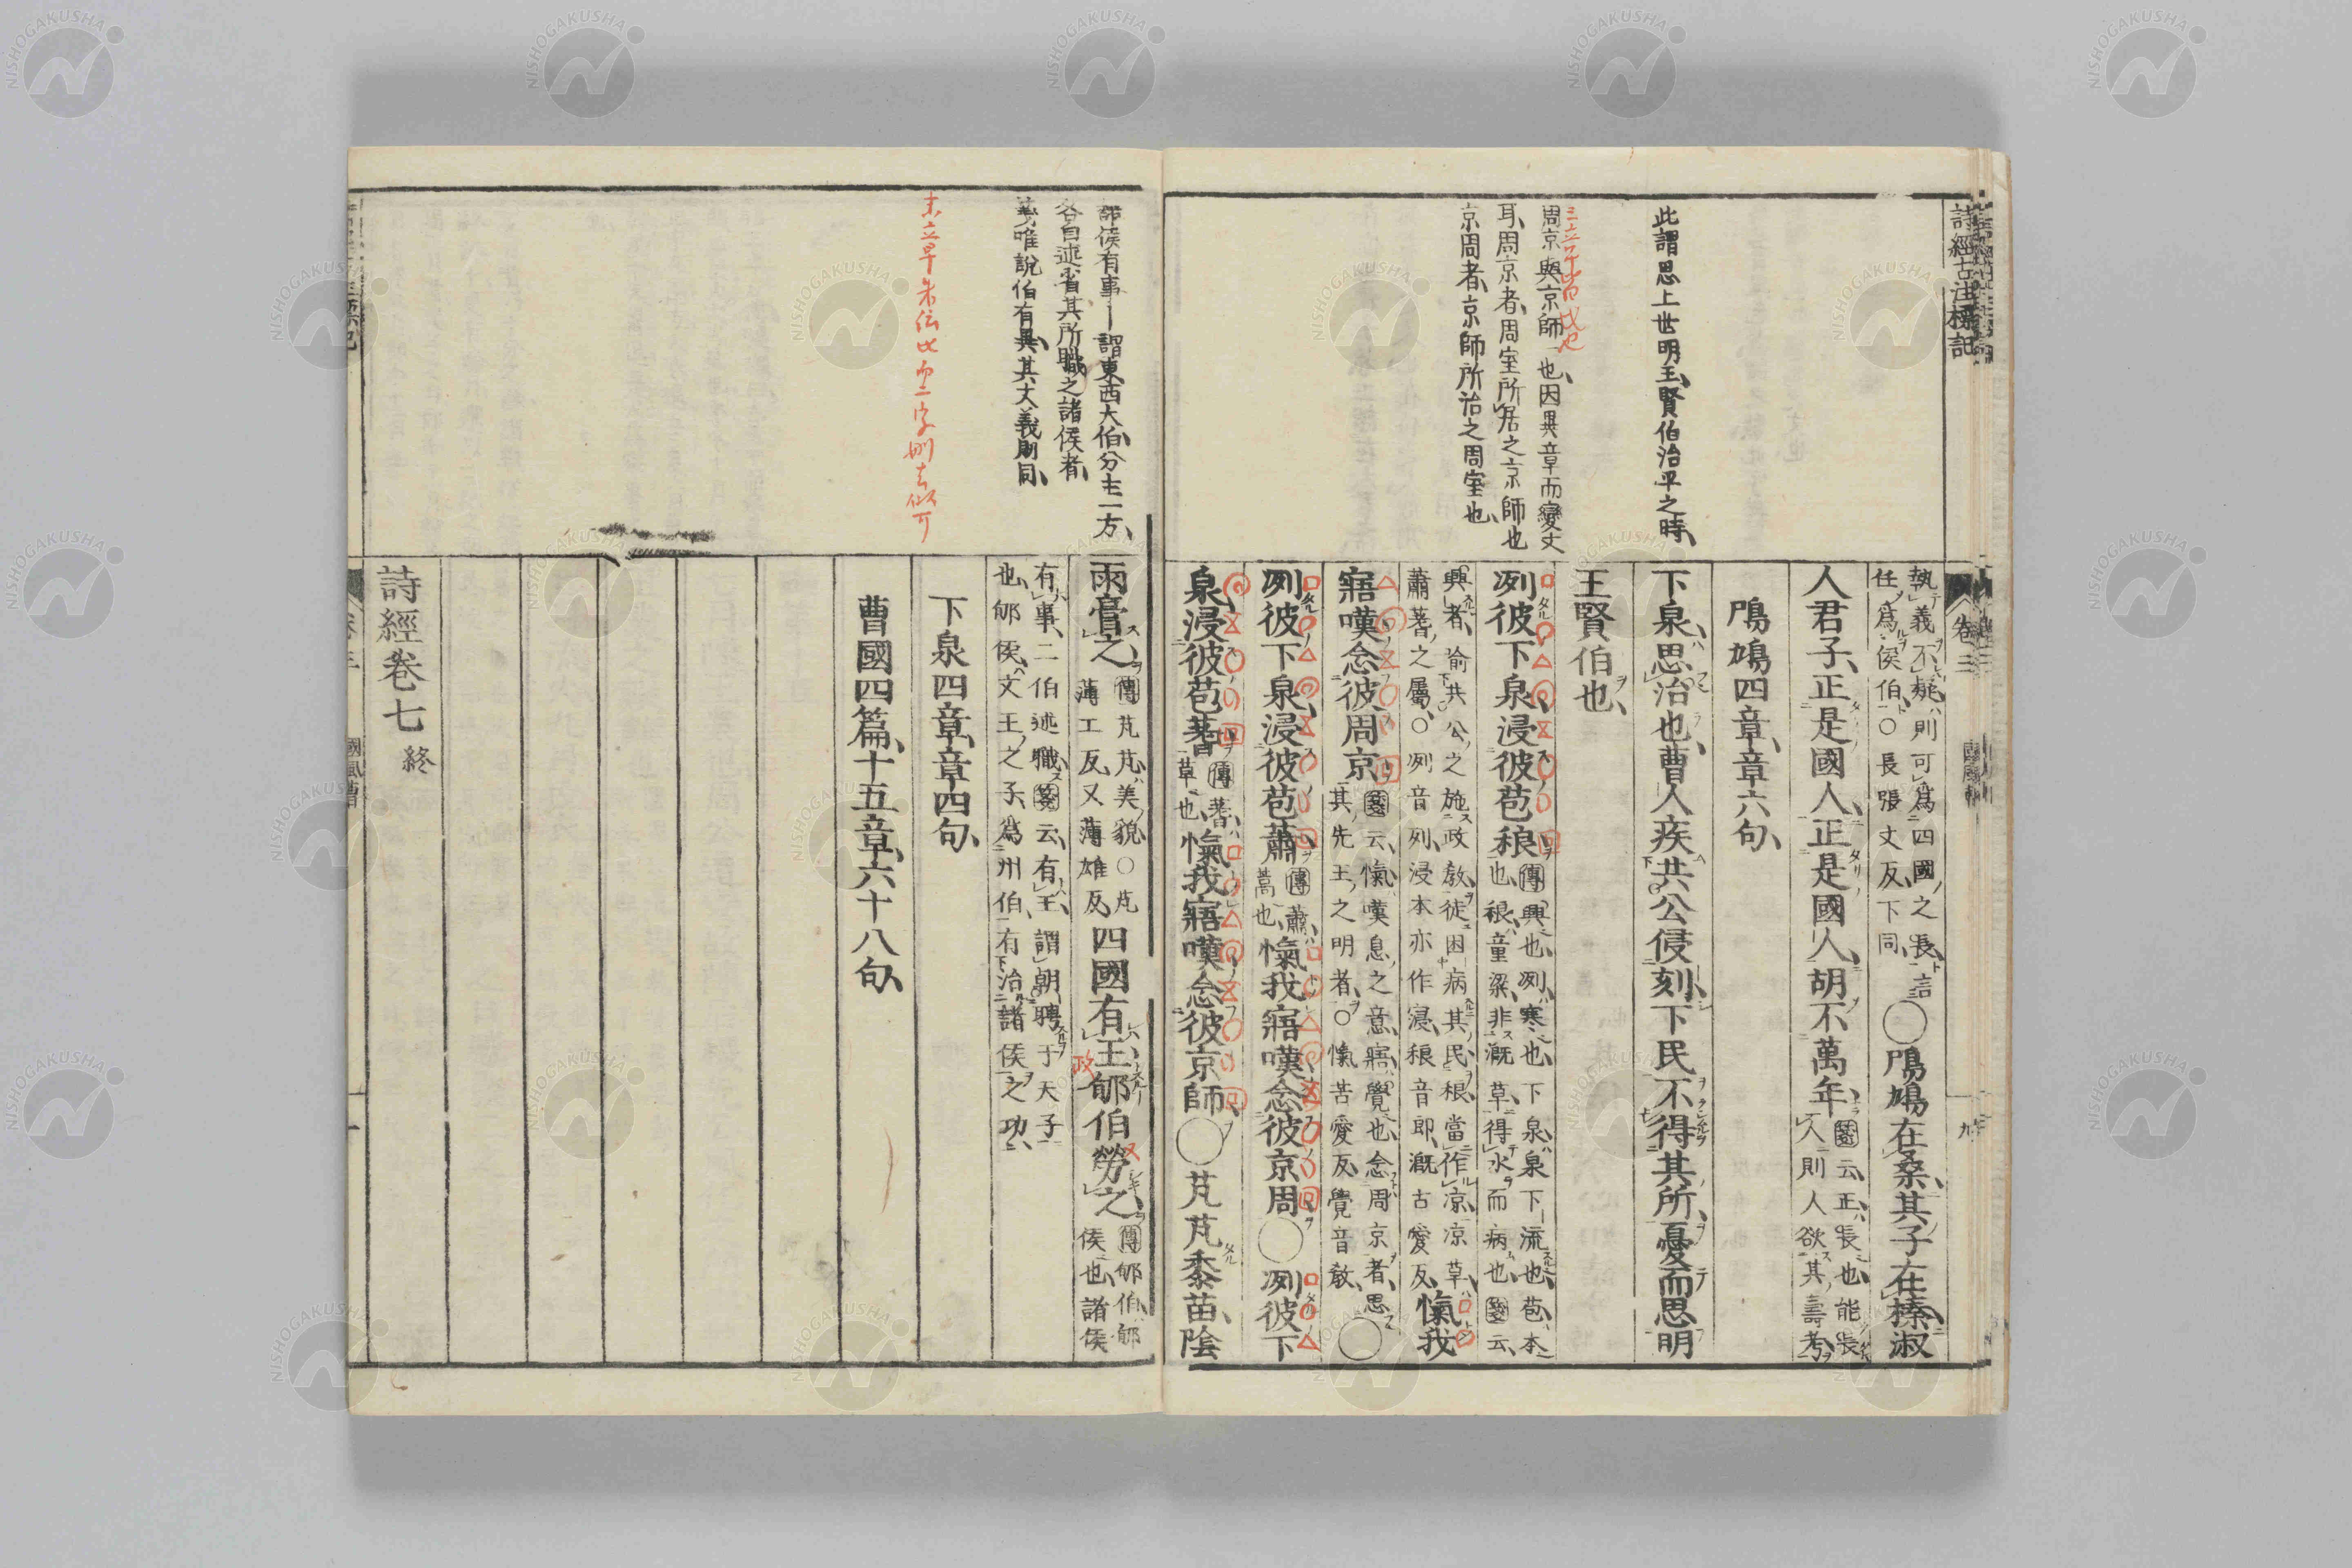 詩經古注標記
此謂思上世明王賢伯治平之時
周京與京師一也因異章而變文
耳周京者周室所居之京師也
京周者京師所治之周室也
卷三
執義不疑則可爲四國之長言
任爲侯伯○長張丈反下同
○鳲鳩在桑其子在榛淑
人君子正是國人正是國人胡不萬年
箋云正長也能長
人則人欲其壽考
鳲鳩四章章六句
下泉思治也曹人疾共公侵刻下民不得其所憂而思明
王賢伯也
冽彼下泉浸彼苞稂
傳興也冽寒也下泉泉下流也苞本
也稂童粱非溉草得水而病也箋云
興者喻共公之施政教徒困病其民稂當作涼涼草
蕭蓍之屬○冽音列浸本亦作寖稂音郎溉古愛反
愾我
寤嘆念彼周京
箋云愾嘆息之意寤覺也念周京者思
其先王之明者○愾苦愛反覺音教
○
冽彼下泉浸彼苞蕭
傳蕭
蒿也
愾我寤嘆念彼京周○冽彼下
泉浸彼苞蓍
傳蓍
草也
愾我寤嘆念彼京師○芃芃黍苗陰
諸侯有事謂東西大伯分主一方
各自述省其所職之諸侯者
箋唯說伯有異其大義則同
雨膏之
傳芃芃美貌○芃
薄工反又薄雄反
四國有王郇伯勞之
傳郇伯郇
侯也諸侯
有事二伯述職箋云有王謂朝聘于天子
也郇侯文王之子爲州伯有治諸侯之功
下泉四章章四句
曹國四篇十五章六十八句
詩經卷七 終